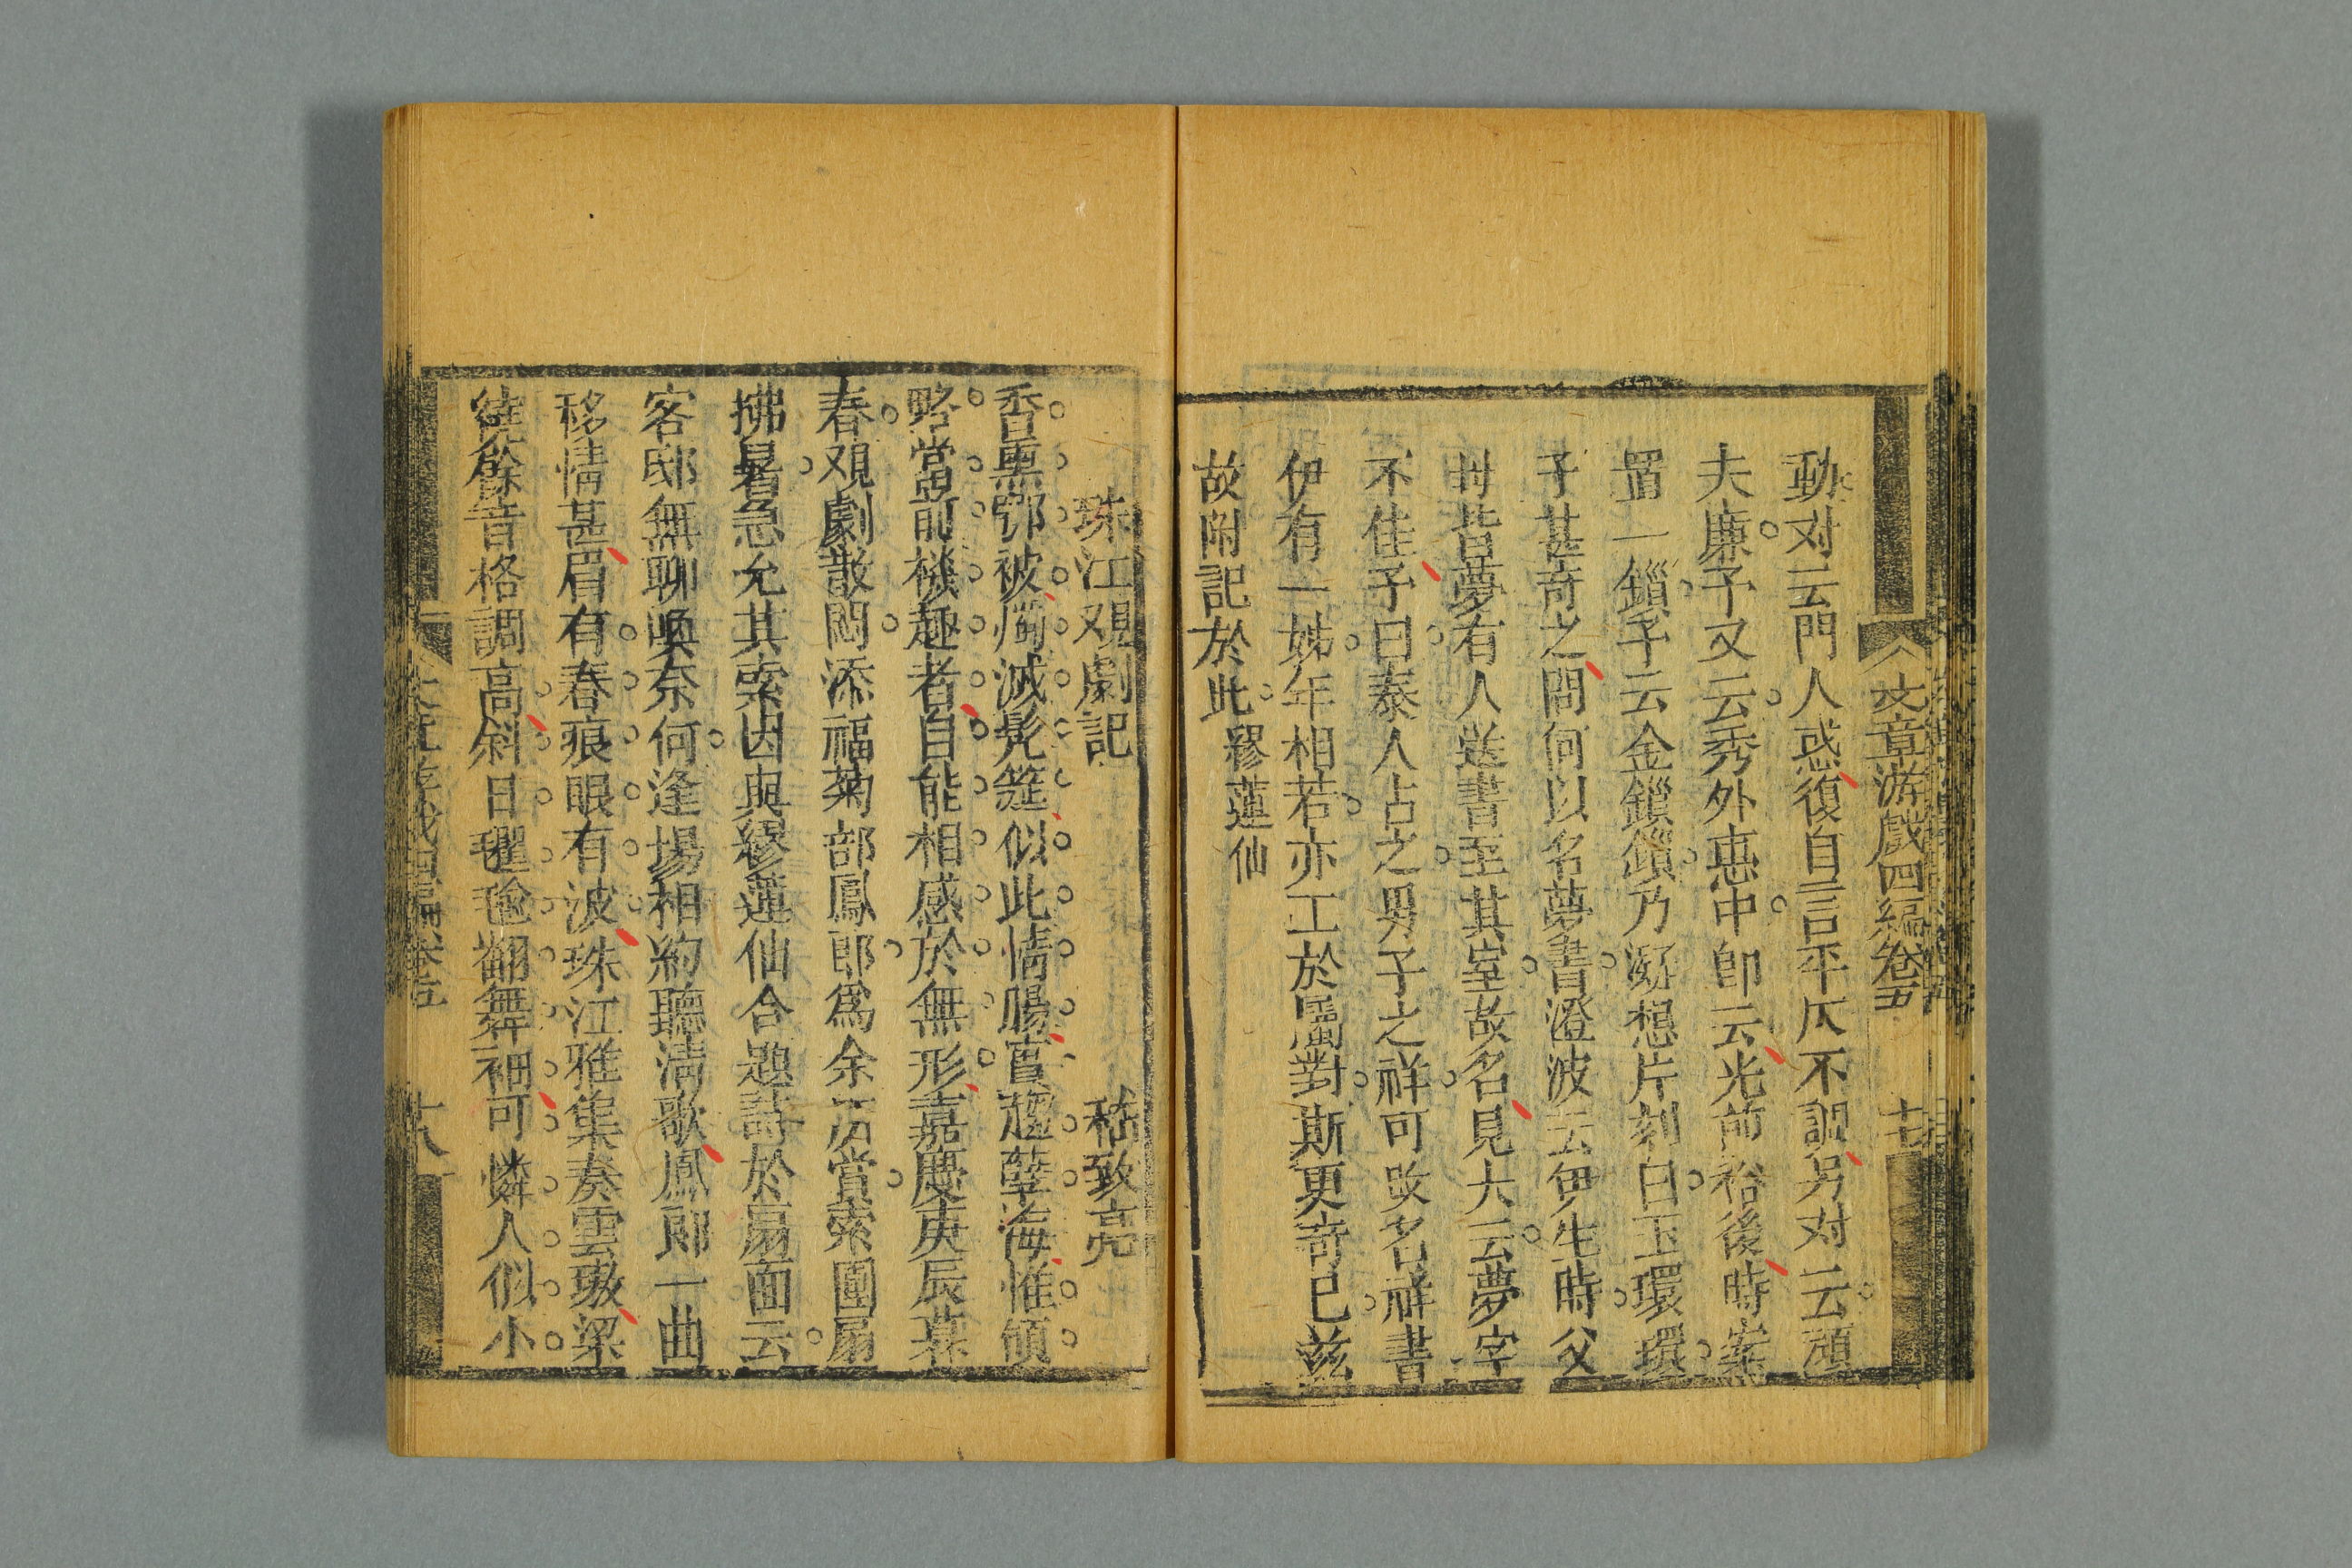 文章游戲四編卷五 十七
動对云門人惑復自言平仄不調另对云頑
夫廉予又云秀外惠中卽云光前裕後時案
置一鎖予云金鎖鎖乃凝想片刻曰玉環環
予甚奇之問何以名夢書澄波云伊生時父
母皆夢有人送書至其室故名見大云夢字
不佳予曰泰人占之男子之祥可改名祥書
伊有一姊年相若亦工於屬對斯更奇已茲
故附記於此 繆蓮仙
珠江观劇記 嵇致亮
香熏鄂被燭滅髡筵似此情腸宣趨孽海惟領
略當前機趣者自能相感於無形嘉慶庚辰暮
春观劇散悶添福菊部鳳郎爲余所賞索團扇
拂暑急允其索因與繆蓮仙合題詩於扇面云
客邸無聊喚奈何逢塲相約聽淸歌鳳郎一曲
移情甚眉有春痕眼有波珠江雅集奏雲璈梁
繞餘音格調高斜日氍毹翻舞袖可憐人似小
文章游戲四編卷五 十八